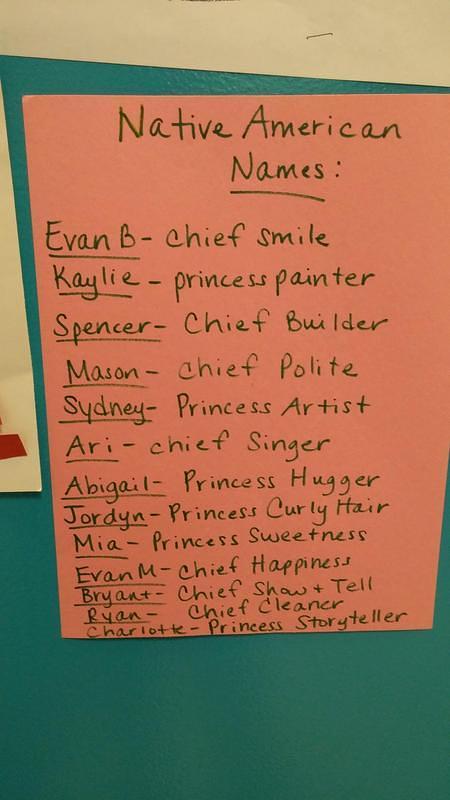 Native American
Names:
Evan B - Chief Smile
Kaylie - princess painter
Spencer - Chief Builder
Mason - Chief Polite
Sydney - Princess Artist
Ari - chief Singer
Abigail - Princess Hugger
Jordyn - Princess Curly Hair
Mia - Princess Sweetness
Evan M - Chief Happiness
Bryant - Chief Show + Tell
Ryan - Chief Cleaner
Charlotte - Princess Storyteller